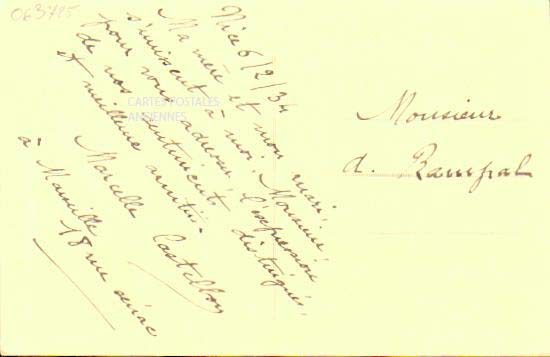 063795
Nice 6/2/34
Ma mère et mon mari
s'unissent à moi, Monsieur,
pour vous adresser l'expression
de nos sentiments distingués
et meilleure amitié.
Marcelle Castellon
à Marseille
18 rue sénac
CARTES POSTALES
ANCIENNES
Monsieur
d. Rampal